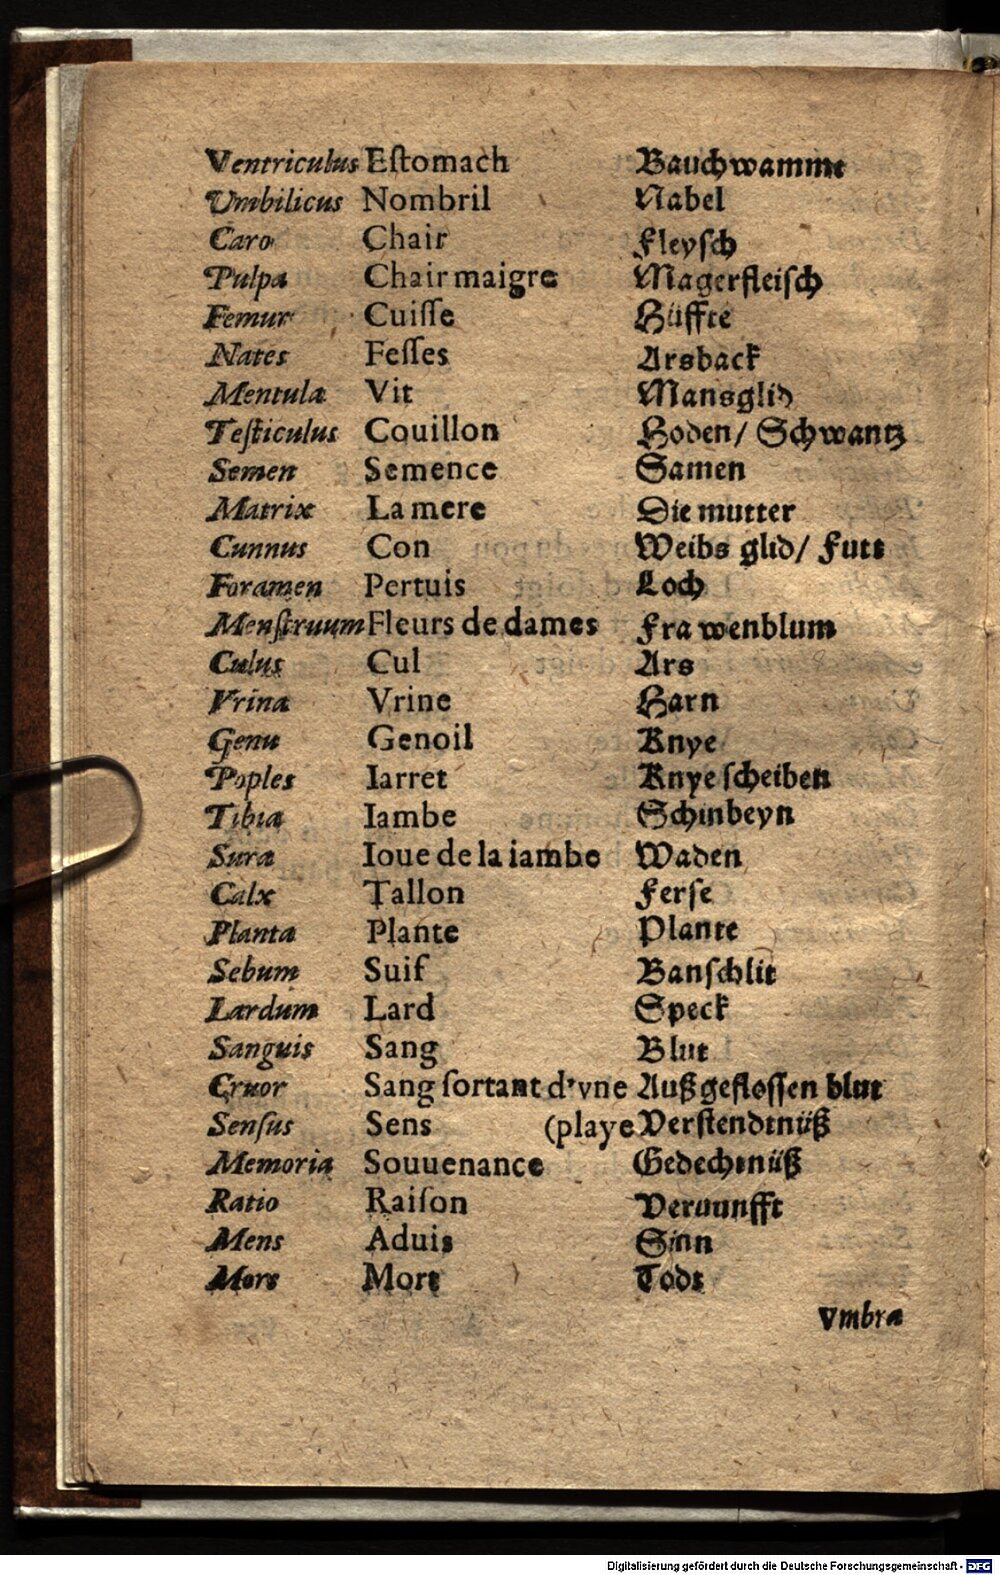 Ventriculus Eſtomach Bauchwamme
Vmbilicus Nombril Nabel
Caro Chair Fleyſch
Pulpa Chair maigre Magerfleiſch
Femur Cuiſſe Hüffte
Nates Feſſes Arsback
Mentula Vit Mansglid
Teſticulus Couillon Hoden/ Schwantz
Semen Semence Samen
Matrix La mere Die mutter
Cunnus Con Weibs glid/ Futt
Foramen Pertuis Loch
Menſtruum Fleurs de dames Frawenblum
Culus Cul Ars
Vrina Vrine Harn
Genu Genoil Knye
Poples Iarret Knyeſcheiben
Tibia Iambe Schinbeyn
Sura Ioue de la iambe Waden
Calx Tallon Ferſe
Planta Plante Plante
Sebum Suif Banſchlit
Lardum Lard Speck
Sanguis Sang Blut
Cruor Sang ſortant d'vne Außgefloſſen blut
Senſus Sens (playe Verſtendtnüß
Memoria Souuenance Gedechtnüß
Ratio Raiſon Vernunfft
Mens Aduis Sinn
Mors Mort Todt
Vmbra
Digitalisierung gefördert durch die Deutsche Forschungsgemeinschaft - DFG